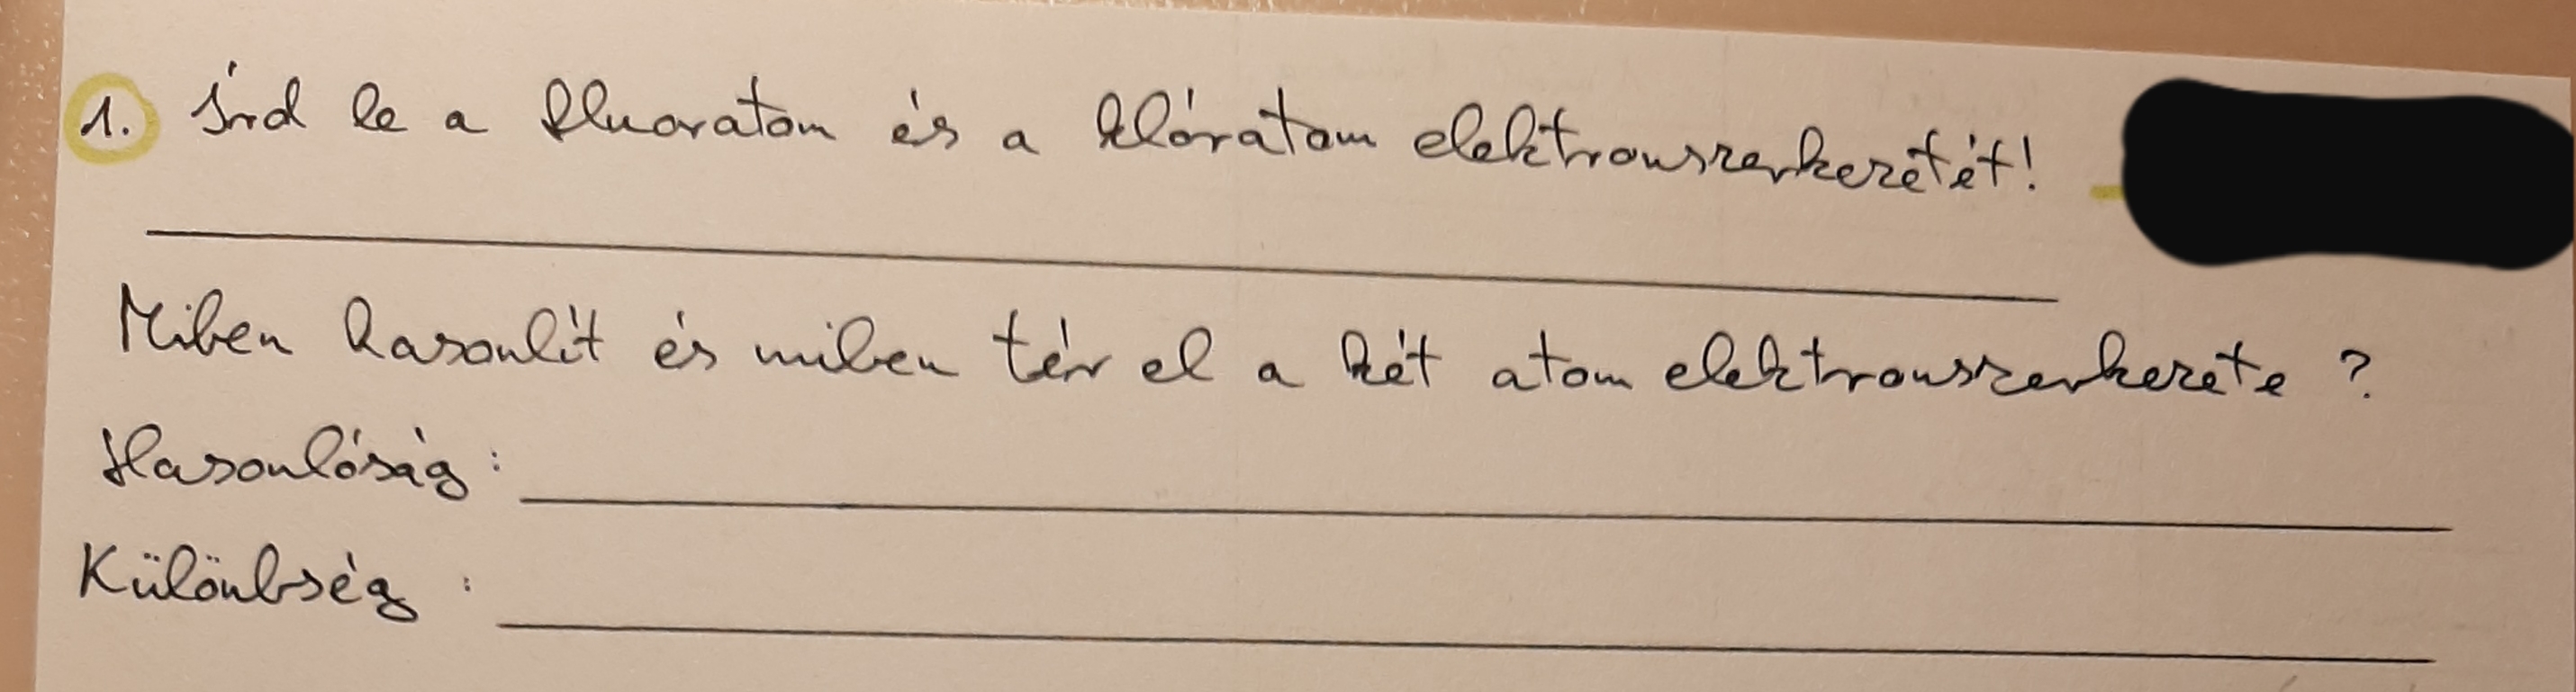 1. Írd le a fluoratom és a klóratom elektronszerkezetét!
Miben hasonlít és miben tér el a két atom elektronszerkezete ?
Hasonlóság :
Különbség :